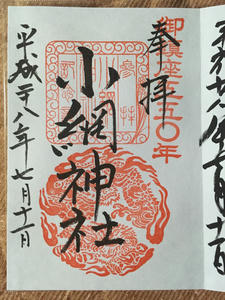 奉拝
御鎮座五五〇年
小網神社
平成廿八年七月十一日